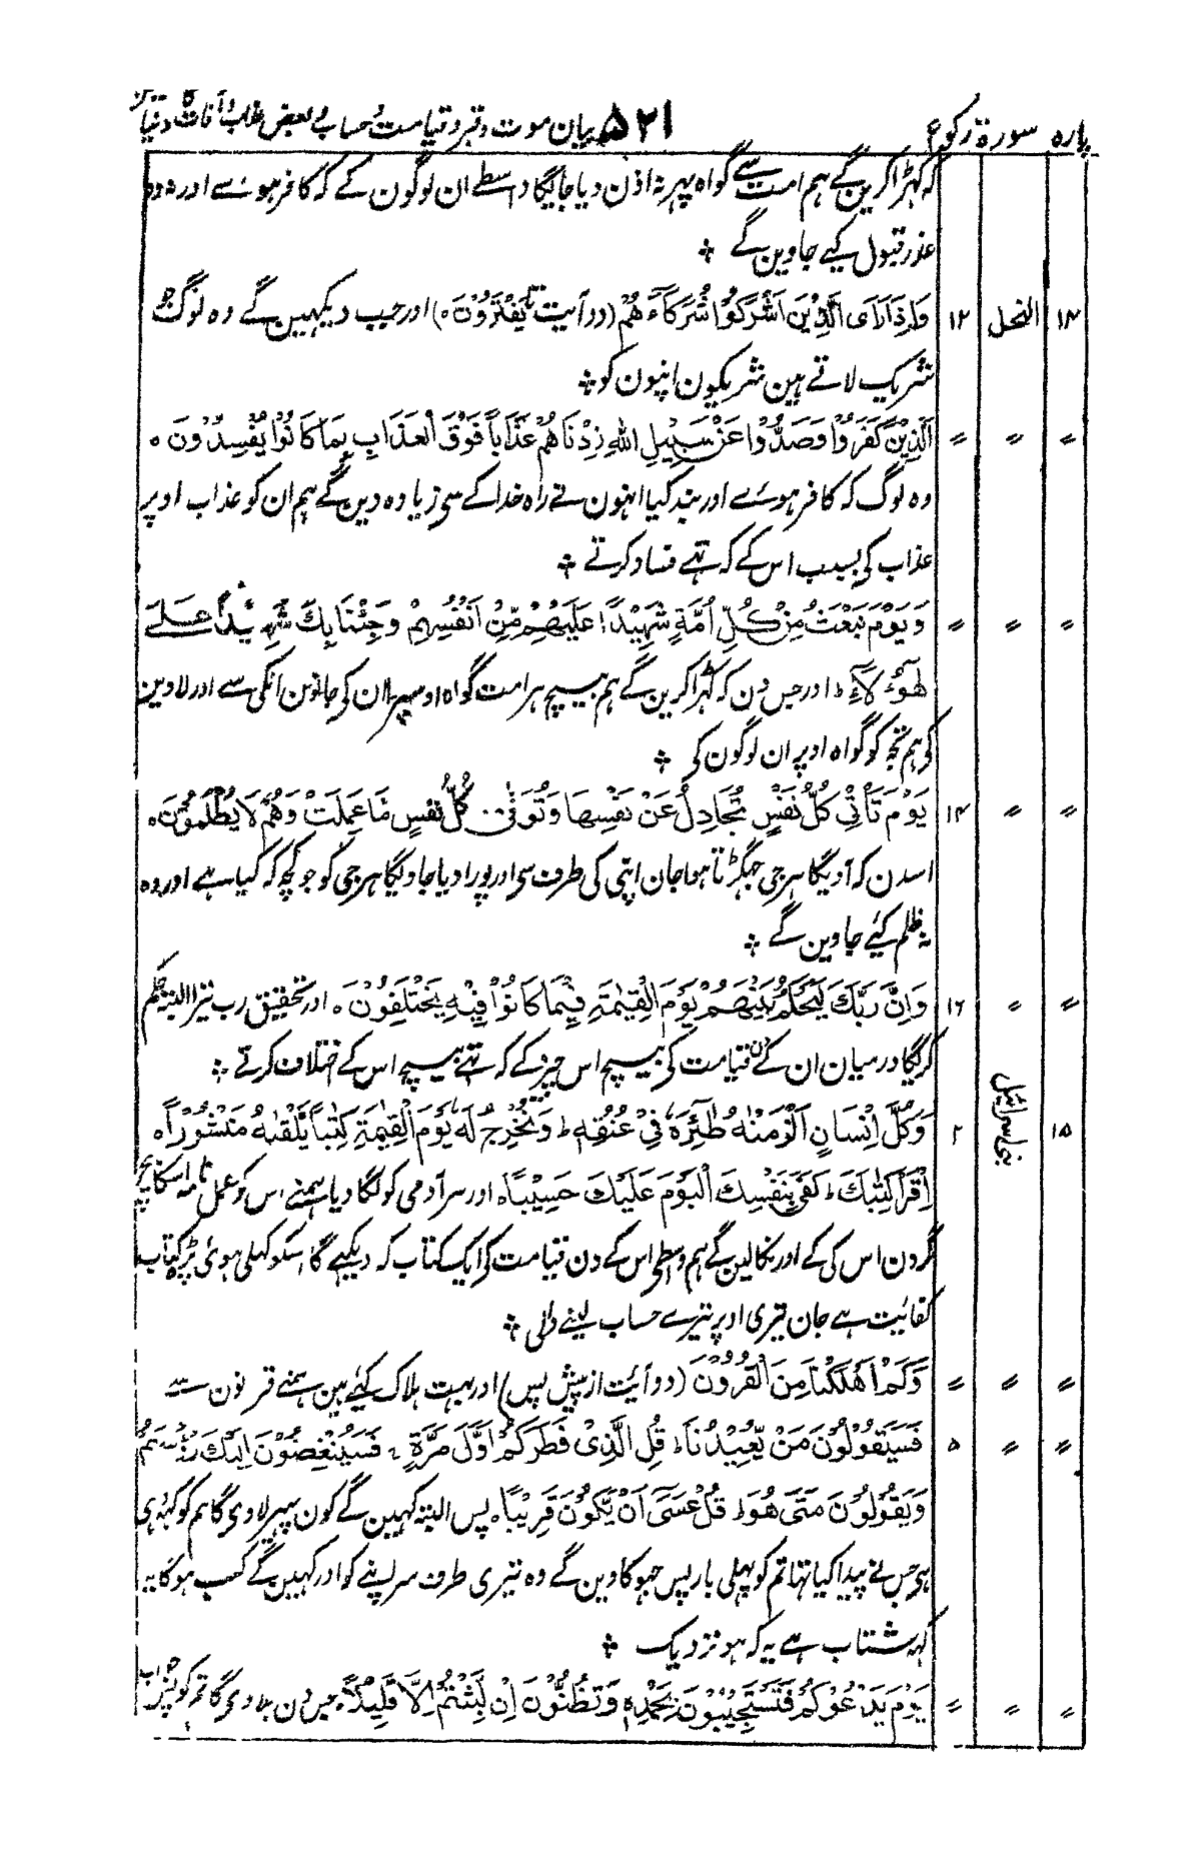 پارہ سورۃ رکوع ۵۲۱ بیان موت و قبر و قیامت و حساب و بعض
کہ کہڑا کرین گے ہم امت سے گواہ پہر نہ اذن دیا جائیگا واسطے ان لوگون کے کہ کافر ہوے اور نہ وہ
عذر قبول کیے جاوین گے ÷
۱۴ النحل ۱۲ وَاِذَا رَاَى الَّذِيْنَ اَشْرَكُوْا شُرَكَآءَهُمْ (دو آیت تا يَفْتَرُوْنَ ہ) اور جب دیکہین گے وہ لوگ جو
شریک لاتے ہین شریکون اپنون کو ÷
〃 〃 〃 اَلَّذِيْنَ كَفَرُوْا وَصَدُّوْا عَنْ سَبِيْلِ اللهِ زِدْنَاهُمْ عَذَاباً فَوْقَ الْعَذَابِ بِمَا كَانُوْا يُفْسِدُوْنَ ہ
وہ لوگ کہ کافر ہوے اور بند کیا انہون نے راہ خدا کے سی زیادہ دین گے ہم ان کو عذاب اوپر
عذاب کی بسبب اس کے کہ تہے فساد کرتے ÷
〃 〃 〃 وَيَوْمَ نَبْعَثُ مِنْ كُلِّ اُمَّةٍ شَهِيْداً عَلَيْهِمْ مِّنْ اَنْفُسِهِمْ وَجِئْنَا بِكَ شَهِيْداً عَلٰى
هٰٓؤُلَآءِ ط اور جس دن کہ کہڑا کرین گے ہم بیچ ہر امت گواہ اوپر ان کی جانون انکی سے اور لاوین
گی ہم تجہ کو گواہ اوپر ان لوگون کی ÷
〃 〃 ۱۴ يَوْمَ تَاْتِىْ كُلُّ نَفْسٍ تُجَادِلُ عَنْ نَفْسِهَا وَتُوَفّٰى كُلُّ نَفْسٍ مَّا عَمِلَتْ وَهُمْ لَا يُظْلَمُوْنَ ہ
اسدن کہ آویگا ہر جی جہگڑتا ہوا جان اپنی کی طرف سی اور پورا دیا جاویگا ہر جی کو جو کچہ کہ کیا ہے اور وہ
نہ ظلم کیے جاوین گے ÷
〃 〃 ۱۶ وَاِنَّ رَبَّكَ لَيَحْكُمُ بَيْنَهُمْ يَوْمَ الْقِيٰمَةِ فِيْمَا كَانُوْا فِيْهِ يَخْتَلِفُوْنَ ہ اور تحقیق رب تیرا البتہ حکم
کریگا درمیان ان کے دن قیامت کی بیچ اس چیز کے کہ تہے بیچ اس کے اختلاف کرتے ÷
۱۵ بنی اسرائیل ۲ وَكُلَّ اِنْسَانٍ اَلْزَمْنٰهُ طٰٓئِرَهٗ فِىْ عُنُقِهٖ ط وَنُخْرِجُ لَهٗ يَوْمَ الْقِيٰمَةِ كِتٰباً يَّلْقٰىهُ مَنْشُوْراً ہ
اِقْرَاْ كِتٰبَكَ ط كَفٰى بِنَفْسِكَ الْيَوْمَ عَلَيْكَ حَسِيْباً ہ اور ہر آدمی کو لگا دیا ہمنے اس کو عمل نامہ اسکا بیچ
گردن اس کی کے اور نکالین گے ہم واسطے اس کے دن قیامت کی ایک کتاب کہ دیکہے گا اسکو کہلی ہوئی پڑہ کتاب
کفایت ہے جان تیری اوپر تیرے حساب لینے والی ÷
〃 〃 〃 وَكَمْ اَهْلَكْنَا مِنَ الْقُرُوْنِ (دو آیت از پیش پس) اور بہت ہلاک کیے ہین ہمنے قرنون سے
〃 〃 ۵ فَسَيَقُوْلُوْنَ مَنْ يُّعِيْدُنَا ط قُلِ الَّذِىْ فَطَرَكُمْ اَوَّلَ مَرَّةٍ ج فَسَيُنْغِضُوْنَ اِلَيْكَ رُءُوْسَهُمْ
وَيَقُوْلُوْنَ مَتٰى هُوَ ط قُلْ عَسٰٓى اَنْ يَّكُوْنَ قَرِيْباً ہ پس البتہ کہین گے کون پہیر لاوی گا ہم کو کہہ وہی
ہی جس نے پیدا کیا تہا تم کو پہلی بار پس جہوکاوین گے وہ تیری طرف سر اپنے کو اور کہین گے کب ہوگا یہ
کہہ شتاب ہے یہ کہ ہو نزدیک ÷
〃 〃 〃 يَوْمَ يَدْعُوْكُمْ فَتَسْتَجِيْبُوْنَ بِحَمْدِهٖ وَتَظُنُّوْنَ اِنْ لَّبِثْتُمْ اِلَّا قَلِيْلاً ہ جس دن بلاوی گا تم کو پس جواب